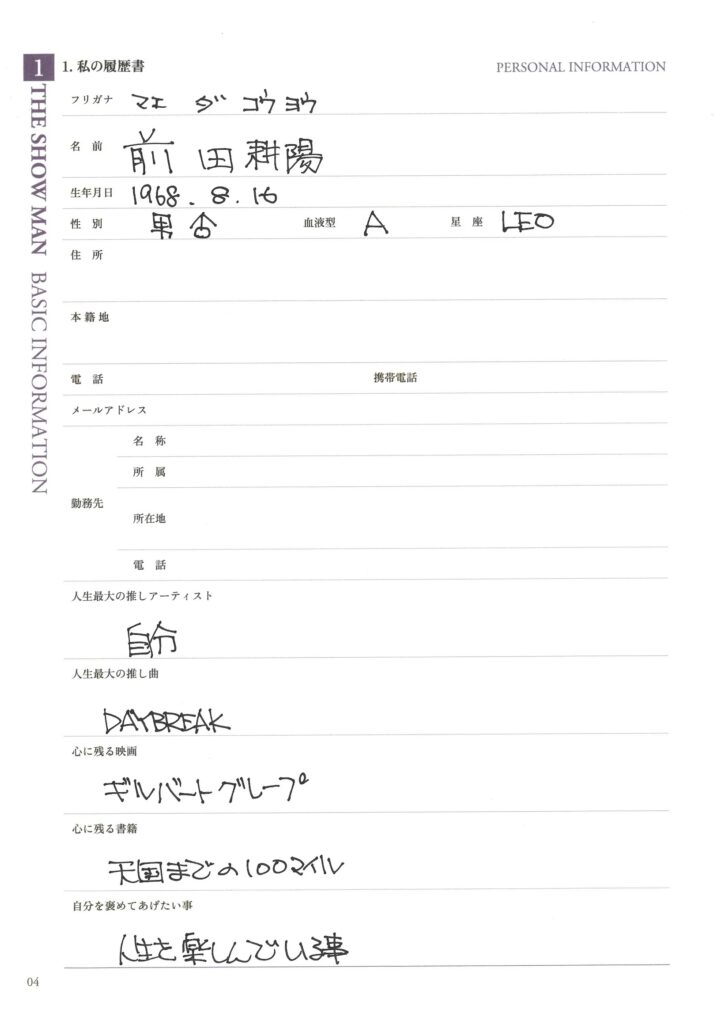 1
THE SHOW MAN BASIC INFORMATION
1. 私の履歴書
PERSONAL INFORMATION
フリガナ マエ ダ コウヨウ
名 前 前田耕陽
生年月日 1968.8.16
性 別 男 血液型 A 星 座 LEO
住 所
本 籍 地
電 話 携帯電話
メールアドレス
勤務先
名 称
所 属
所在地
電 話
人生最大の推しアーティスト
自分
人生最大の推し曲
DAYBREAK
心に残る映画
ギルバートグレープ
心に残る書籍
天国までの100マイル
自分を褒めてあげたい事
人生を楽しんでいる事
04